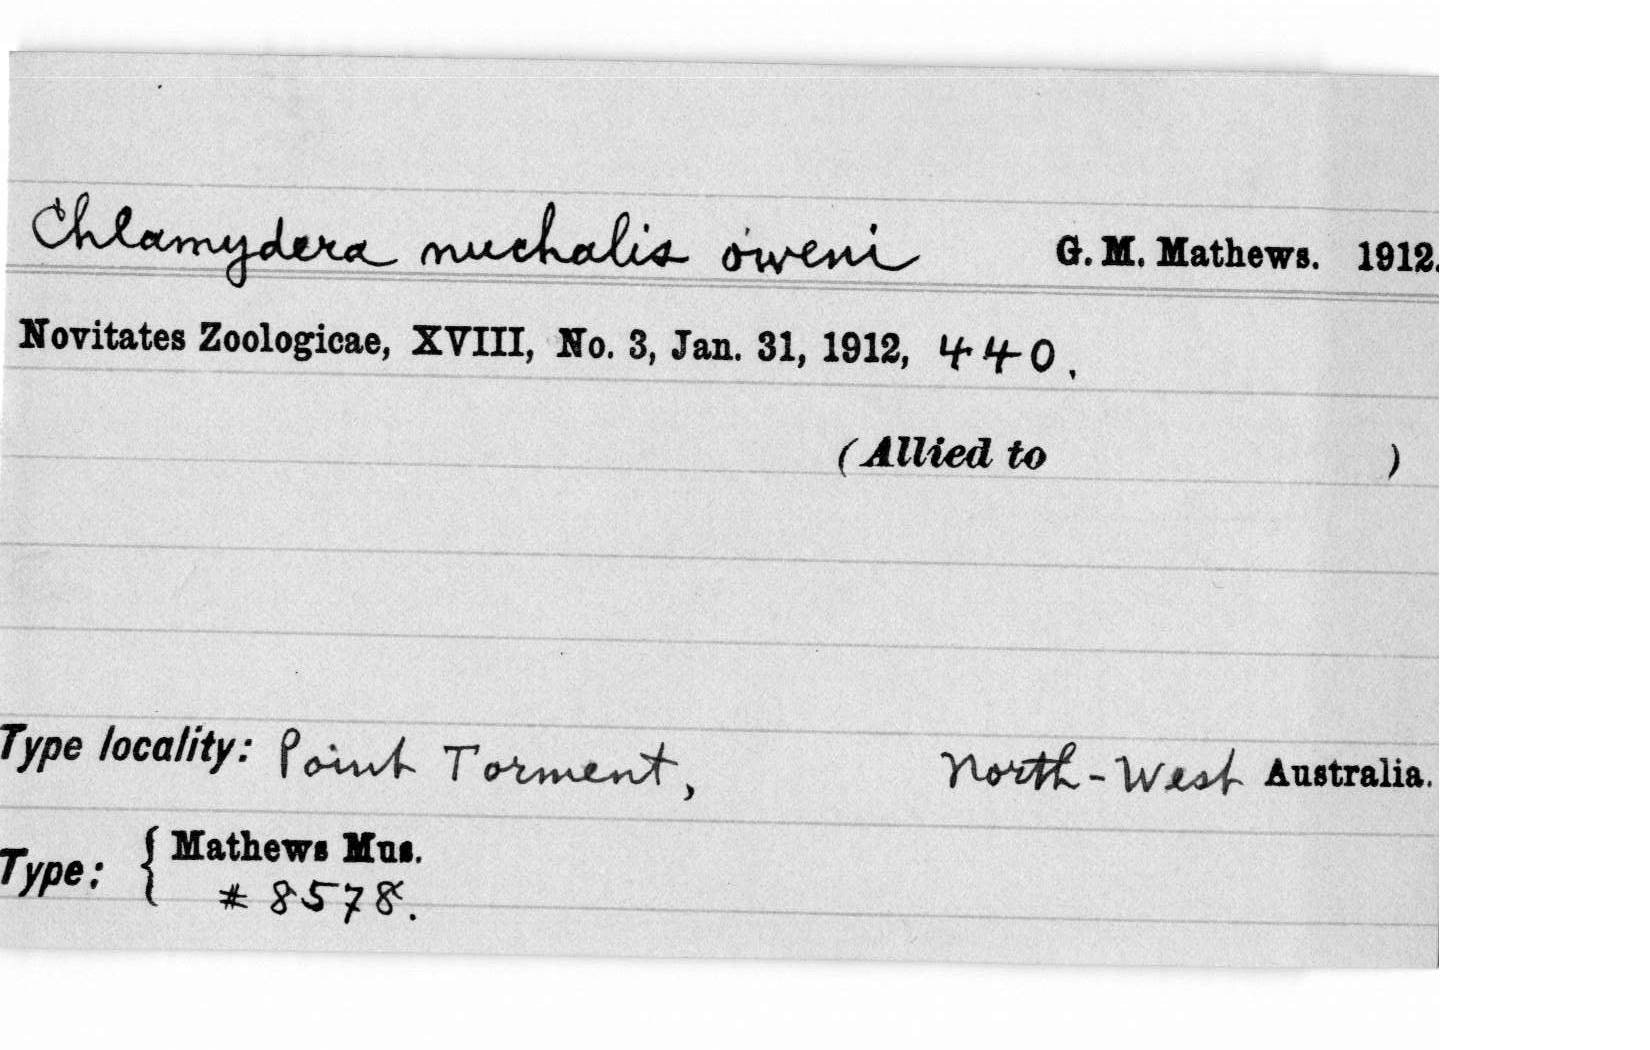 Chlamydera nuchalis oweni G. M. Mathews. 1912.
Novitates Zoologicae, XVIII, No. 3, Jan. 31, 1912, 440.
(Allied to )
Type locality: Point Torment, North-West Australia.
Type: { Mathews Mus.
# 8578.